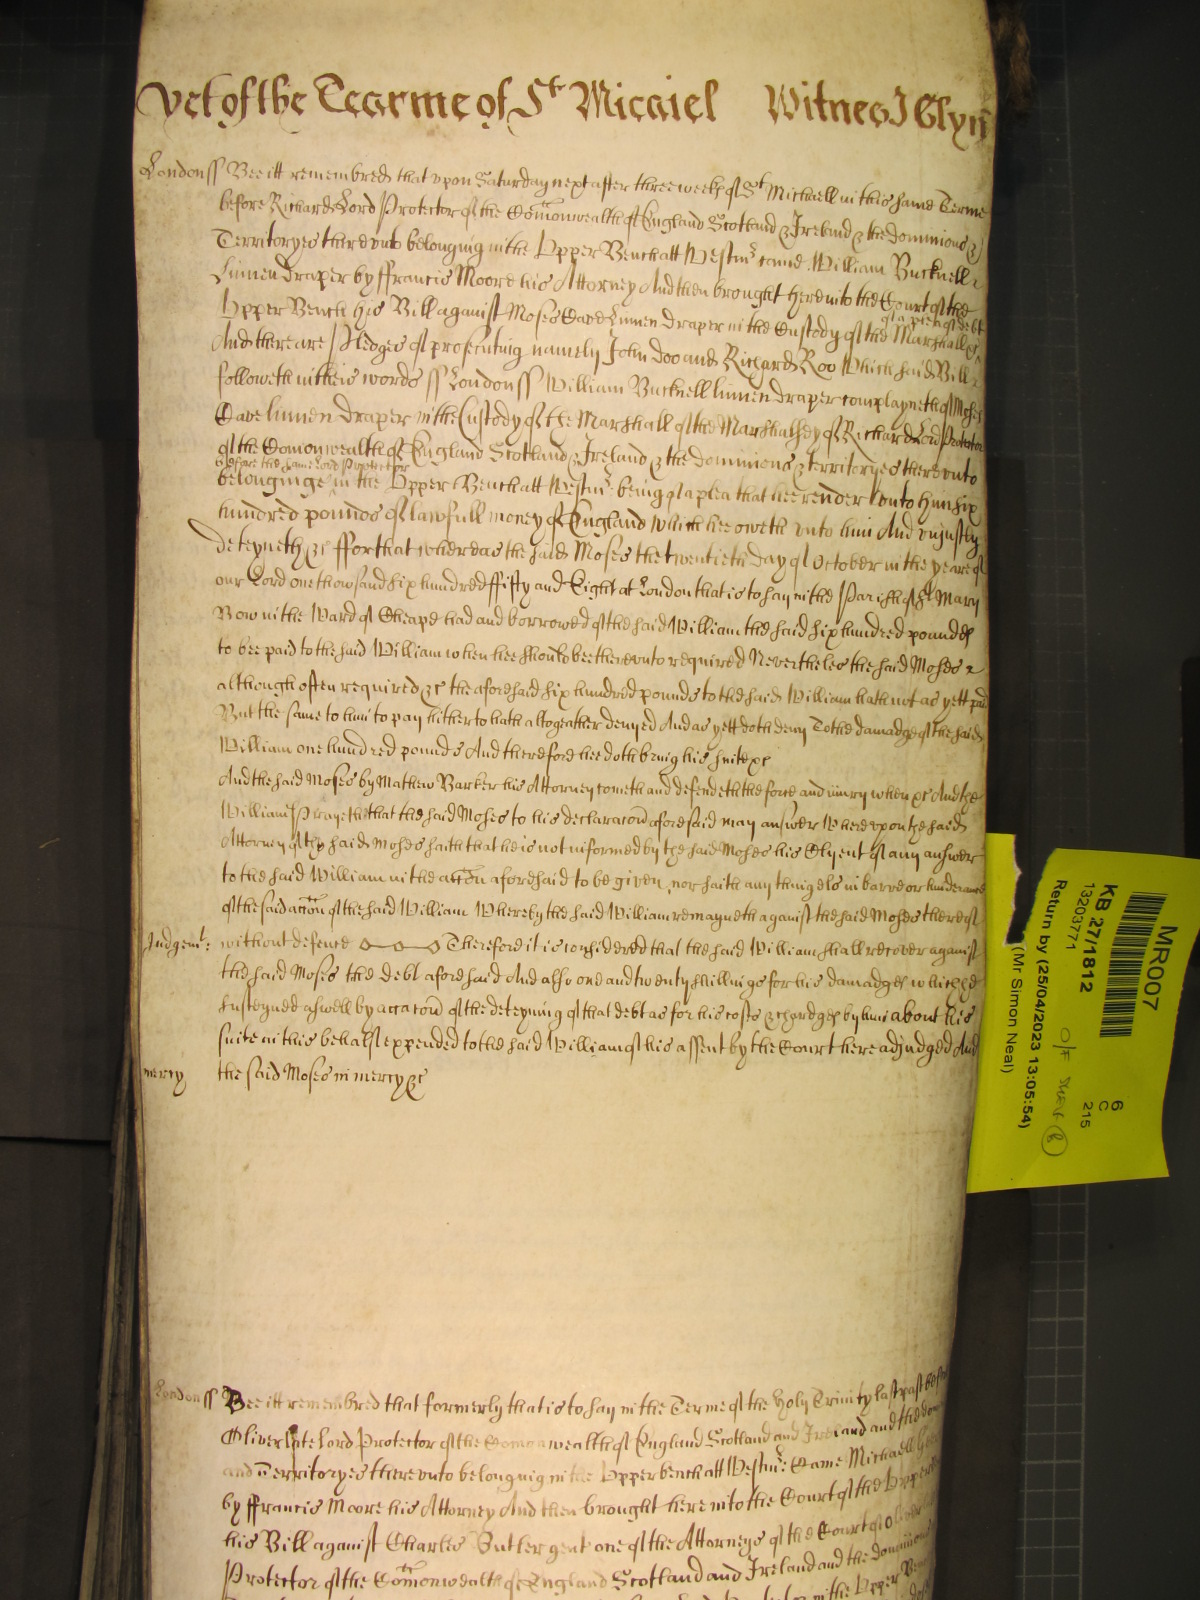 Yet of the Tearme of St Micaiel Witnes J Glyn
London ss Bee itt remembred that upon Saturday next after three weeks of St Michaell in this same Terme
before Richard Lord Protector of the Comonwealth of England Scotland & Ireland & the dominions &
Territoryes thereunto belonging in the Upper Bench att Westmr came William Bucknell
Linnen draper by ffrancis Moore his Attorney And then brought here into the Court of the
Upper Bench his Bill against Moses Dave Linnen draper in the Custody of the Marshall &c
of a plea of debt
And there are Pledges of prosecuting namely John Doo and Richard Roo Which said Bill
followeth in theis words ss London ss William Bucknell linnen draper complayneth of Moses
Dave linnen draper in the Custody of the Marshall of the Marshalsey of Richard Lord Protector
of the Comonwealth of England Scotland & Ireland & the dominions & territoryes thereunto
before the same Lord Protector
belonginge in the Upper Bench att Westmr being of a plea that hee render unto him six
hundred pounds of lawfull money of England which hee oweth unto him And unjustly
deteyneth &c ffor that whereas the said Moses the twentieth day of October in the yeare of
our Lord one thousand six hundred ffifty and Eight at London that is to say in the Parish of St Mary
Bow in the Ward of Cheape had and borrowed of the said William the said six hundred pounds
to bee paid to the said William when hee should bee thereunto required Neverthelес the said Moses
although often required &c the aforesaid six hundred pounds to the said William hath not as yett paid
But the same to him to pay hitherto hath altogeather denyed And as yett doth deny To the damadge of the said
William one hundred pounds And therefore hee doth bring his suite &c
And the said Moses by Mathew Barker his Attorney cometh and defendeth the force and iniury when &c And the
William Prayeth that the said Moses to his declaracon aforesaid may answer Whereupon the said
Attorney of the said Moses saith that he is not informed by the said Moses his Clyent of any answer
to the said William in the accon aforesaid to be given nor saith any thing els in barre or hinderance
of the said accon of the said William Whereby the said William remayneth against the said Moses thereof
Judgemt: without defence Therefore it is considered that the said William shall recover against
the said Moses the debt aforesaid And also one and twenty shillings for his damadges which he
susteyned aswell by occacon of the deteyning of that debt as for his costs & chardges by him about his
suite in this behalf expended to the said William of his assent by the Court here adjudged And
mercy the said Moses in mercy &c
London ss Bee itt remembred that formerly that is to say in the Terme of the holy Trinity last past before
Oliver late Lord Protector of the Comonwealth of England Scotland and Ireland and the
and Territoryes thereunto belonging in the Upper bench att Westmr Came Michaell
by ffrancis Moore his Attorney And then brought here into the Court of the Upper
his Bill against Charles Butler gent one of the Attorneys of the Court of Oliver
Protector of the Comonwealth of England Scotland and Ireland and the dominions
in the Upper
MR007
KB 27/1812
13203771
6
C
215
O/F
Return by (25/04/2023 13:05:54)
(Mr Simon Neal)